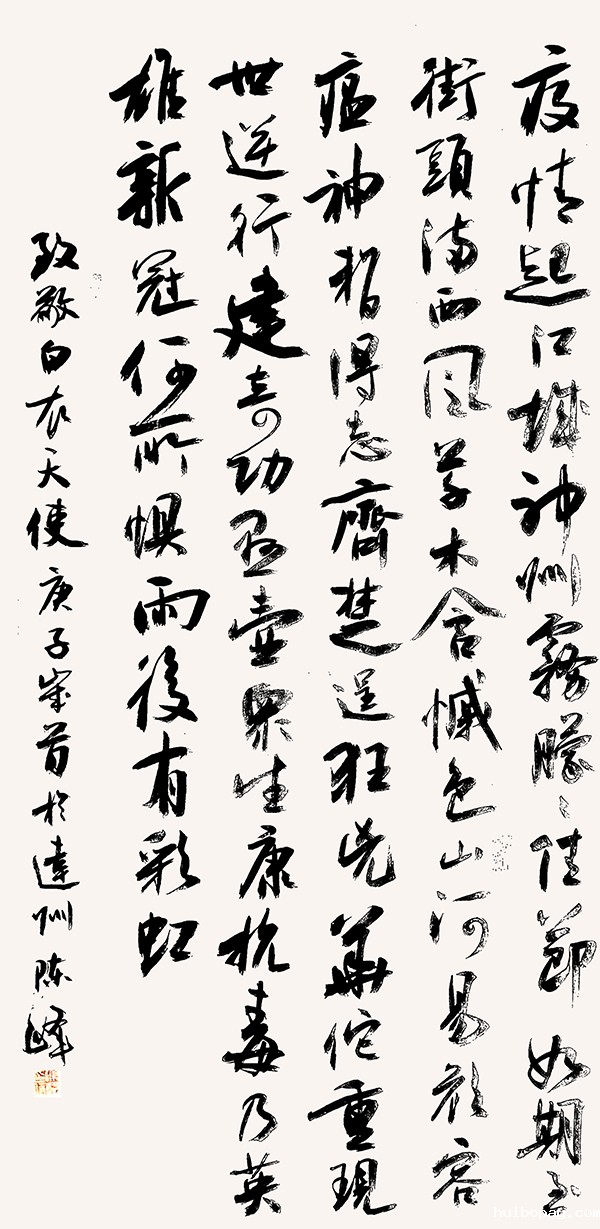 疫情起江城神州霧朦〻佳節如期至
街頭満西風草木含慽色山河易顔容
瘟神猖得志齊楚逞狂兇華佗重現
世逆行建奇功悬壺眾生康抗毒乃英
雄新冠何所惧雨後有彩虹
致敬白衣天使庚子岁首於達州陈峰